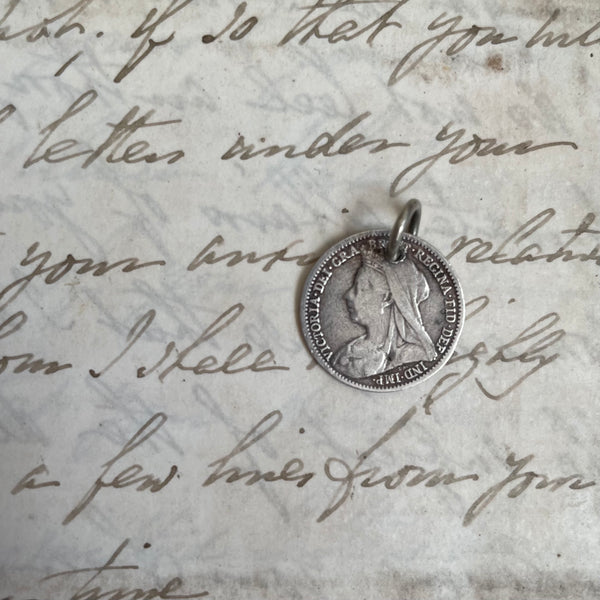 if so that you will
letters under your
your relation
I shall highly
a few lines from your
time
VICTORIA·DEI·GRA· REGINA·FID·DEF·IND·IMP·